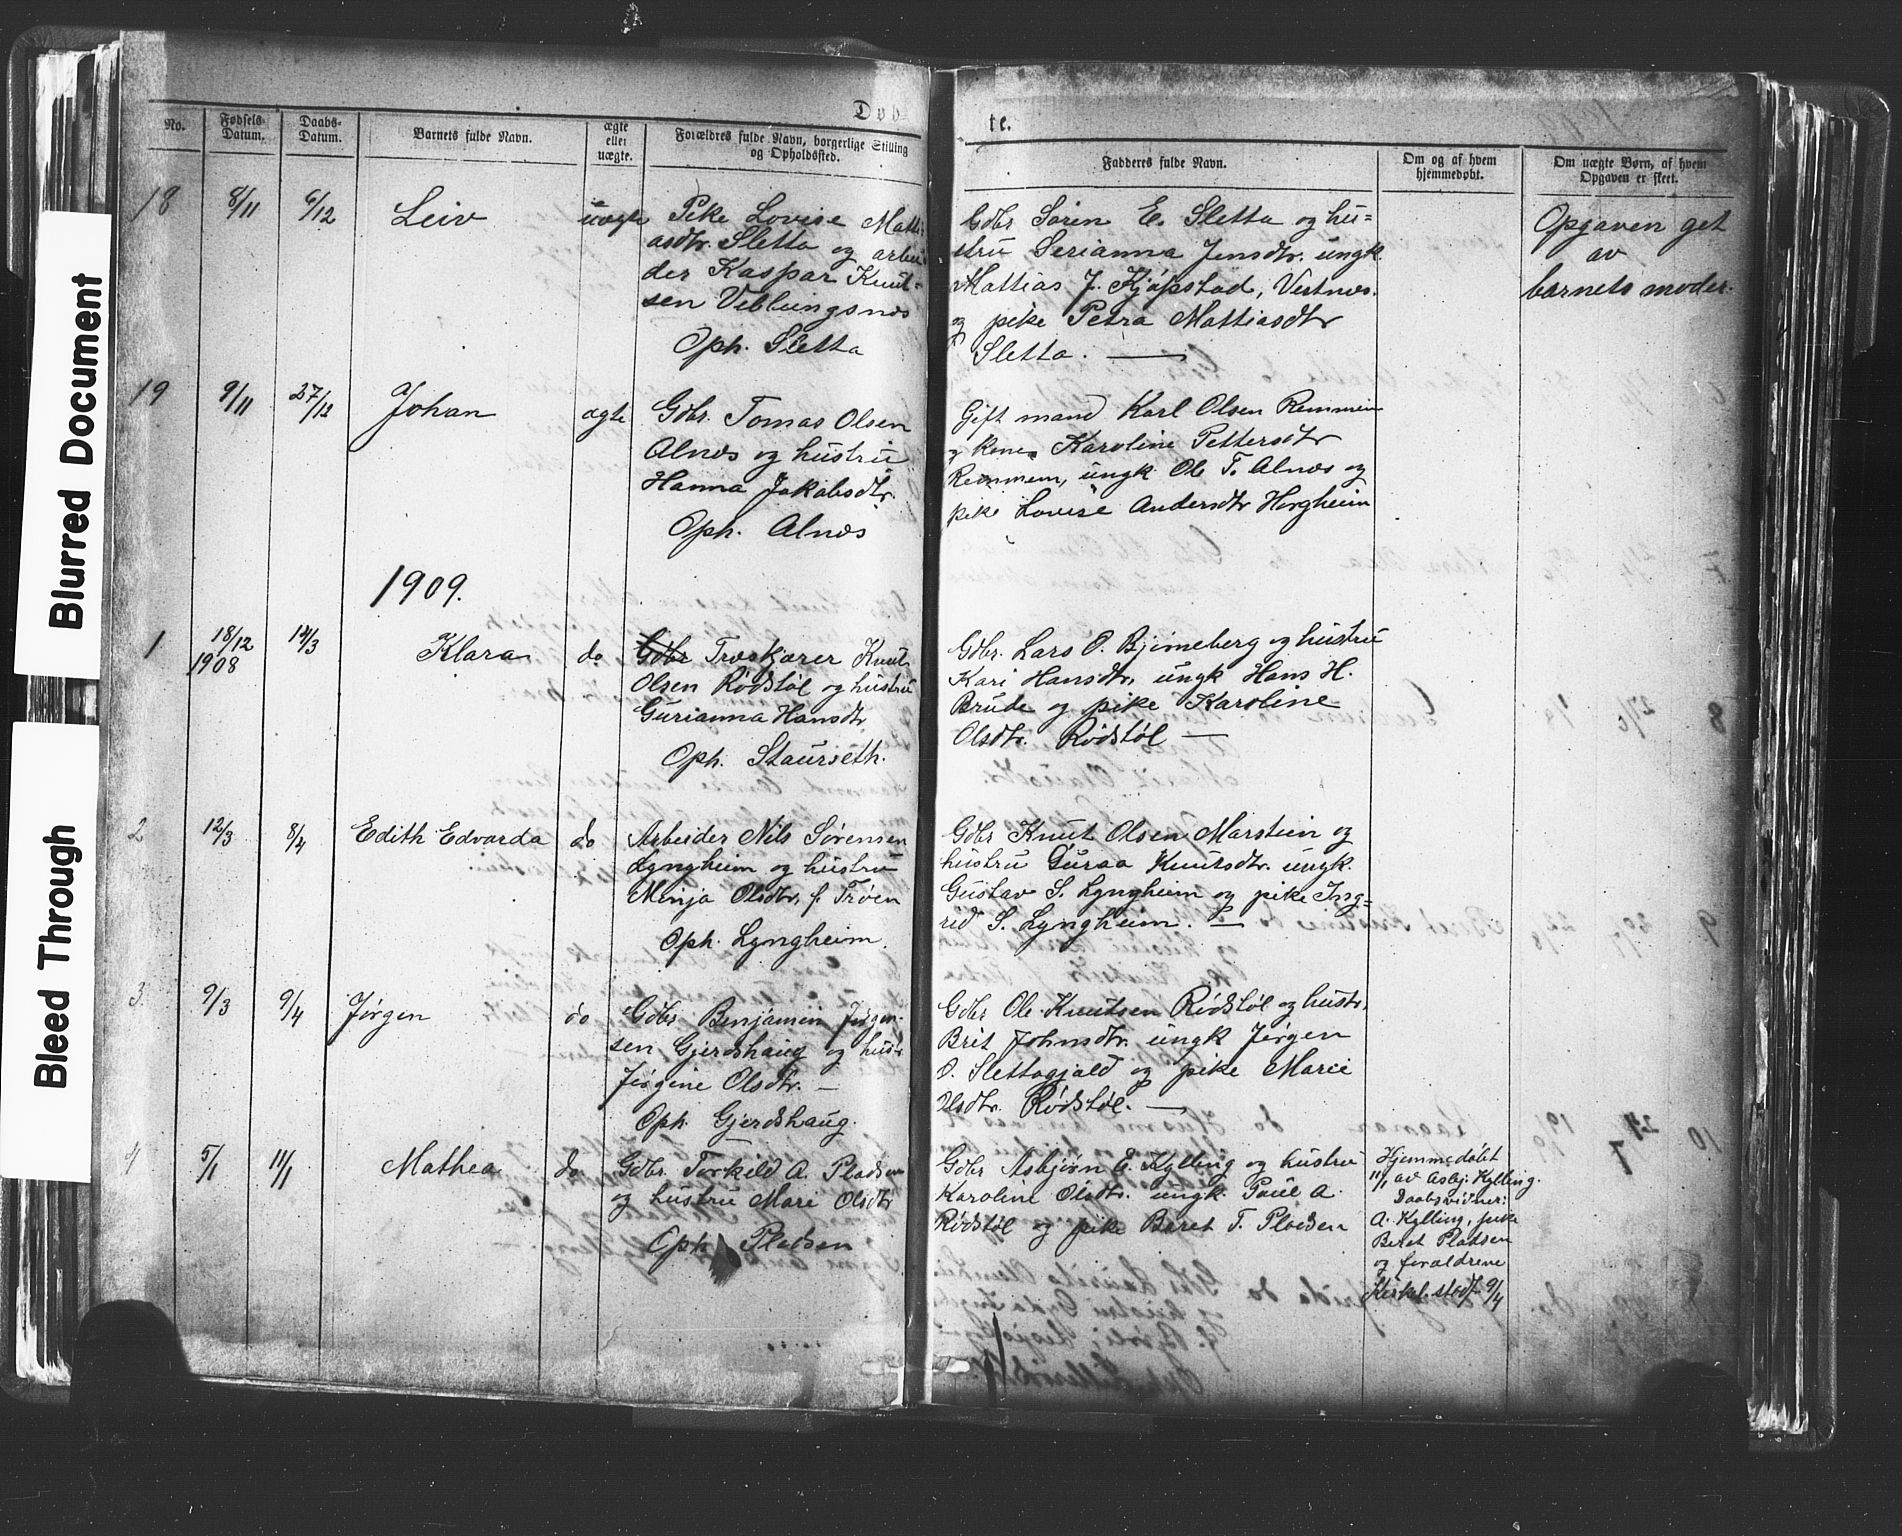 Døbte.
No.
Fødsels Datum.
Daabs-Datum.
Barnets fulde Navn.
ægte eller uægte.
Forældres fulde Navn, borgerlige Stilling og Opholdssted.
Fadderes fulde Navn.
Om og af hvem hjemmedøbt.
Om uægte Børn, af hvem Opgaven er skeet.
18 8/11 6/12 Leiv uægte
Pike Lovise Matti-
asdtr. Sletta og arbei-
der Kaspar Knut-
sen Veblungsnæs
Oph. Sletta
Gdbr Søren E. Sletta og hu=
stru Serianna Jensdtr. ungk.
Mattias J. Kjøpstad, Vestnæs.
og pike Petra Mattiasdtr
Sletta. —
Opgaven get
av
barnets moder.
19 9/11 27/12 Johan ægte
Gdbr. Tomas Olsen
Alnæs og hustru
Hanna Jakobsdtr.
Oph. Alnæs
Gift mand Karl Olsen Remmem
og kone Karoline Pettersdtr
Remmem, ungk Ole T. Alnæs og
pike Lovise Andersdtr Horgheim
1909.
1 18/12 1908 14/3 Klara do
Gdbr Træskjærer Knut
Olsen Rødstøl og hustru
Gurianna Hansdtr
Oph. Staurseth.
Gdbr. Lars O. Bjørneberg og hustru
Kari Hansdtr, ungk Hans H.
Brude og pike Karoline
Olsdtr. Rødstøl —
2 12/3 8/4 Edith Edvarda do
Arbeider Nils Sørensen
Lyngheim og hustru
Minja Olsdtr. f. Trøen
Oph. Lyngheim.
Gdbr Knut Olsen Marstein og
hustru Guraa Knutsdtr. ungk.
Gustav S. Lyngheim og pike Ing=
rid S. Lyngheim. —
3. 9/3 9/4 Jørgen do
Gdbr Benjamin Jørgen-
sen Gjerdshaug og hustr
Jørgine Olsdtr. —
Oph. Gjerdshaug.
Gdbr Ole Knutsen Rødstøl og hustr.
Brit Johnsdtr. ungk Jørgen
O. Slettagjald og pike Marie
Olsdtr. Rødstøl. —
4 5/1 11/1 Mathea do
Gdbr. Torkild A. Pladsen
og hustru Mari Olsdtr
Oph. Pladsen
Gdbr Asbjørn E. Kylling og hustru
Karoline Olsdtr. ungk. Paul A.
Rødstøl og pike Beret T. Pladsen
Hjemmedøbt
11/1 av Asbj. Kylling.
Daabsvidner:
A. Kylling, pike
Beret Pladsen
og forældrene
Kirkl. stadf. 9/4
Blurred Document
Bleed Through